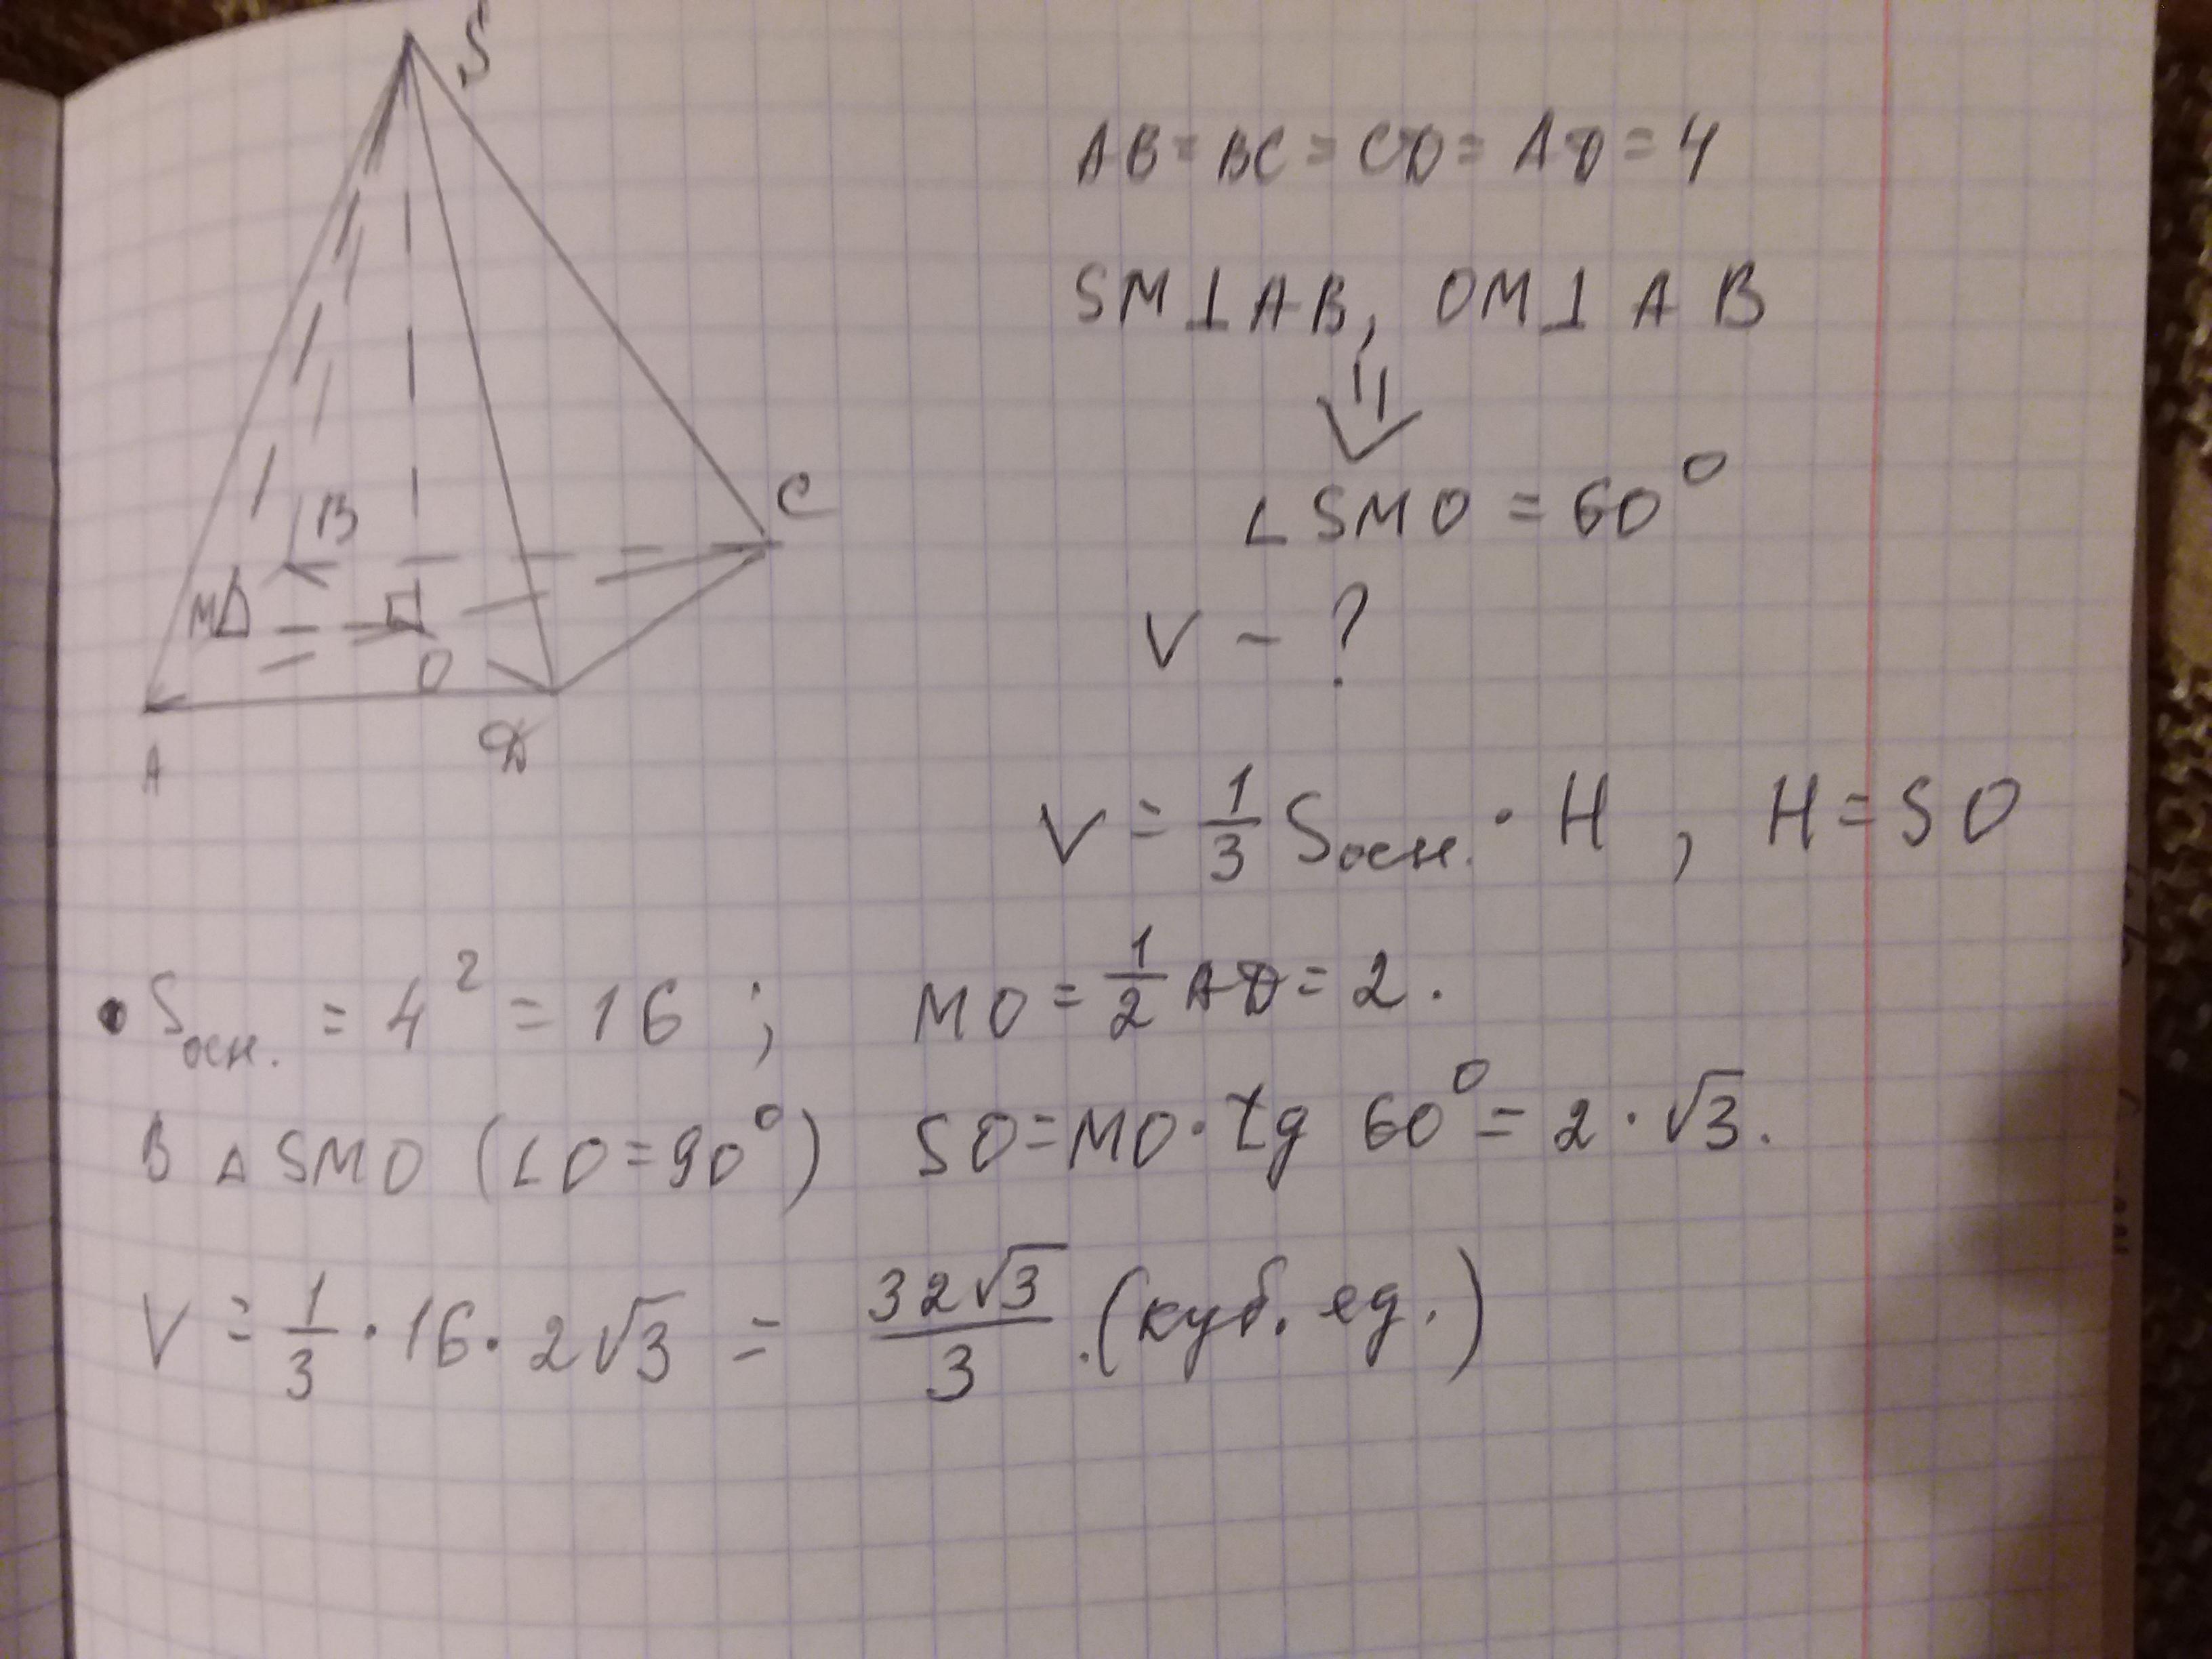 S
AB = BC = CD = AD = 4
SM ⊥ AB, OM ⊥ AB
⇓
∠ SMO = 60°
C
B
M
O
V - ?
A
D
V = 1/3 Sосн. · H , H = SO
• Sосн. = 4² = 16 ; MO = 1/2 AD = 2.
В △ SMO (∠O = 90°) SO = MO · tg 60° = 2 · √3.
V = 1/3 · 16 · 2√3 = 32√3/3 . (куб. ед.)